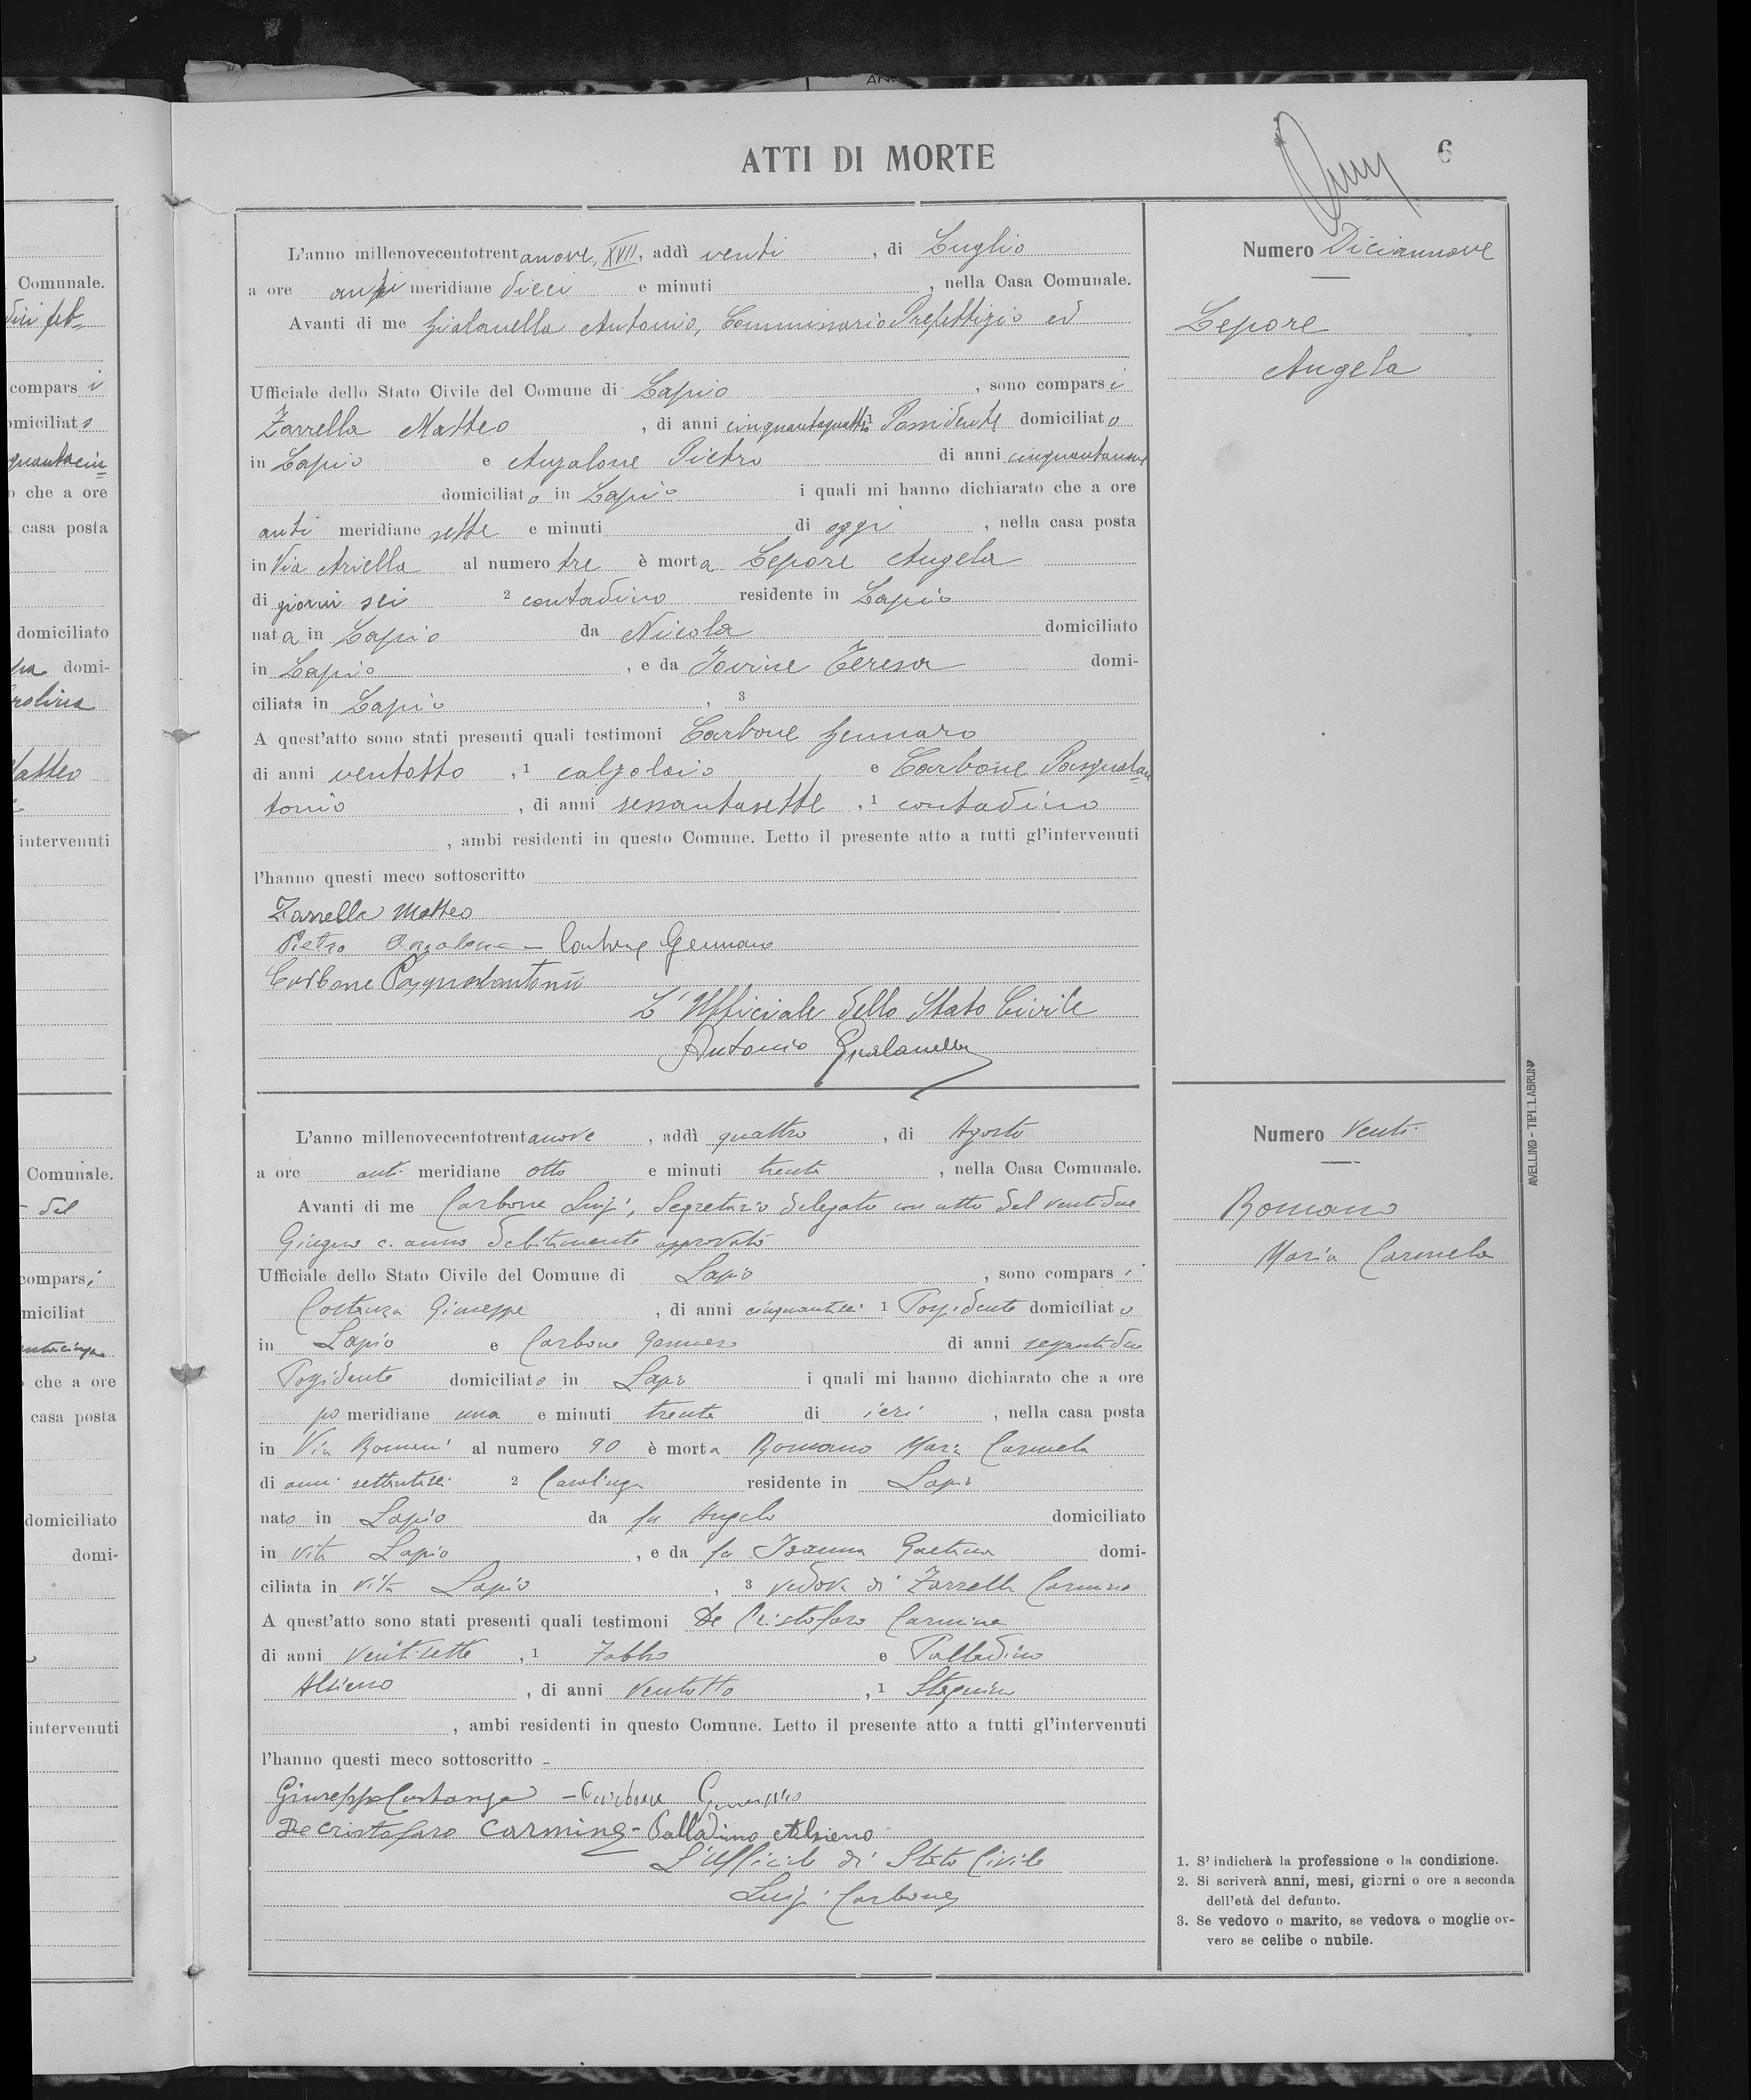 ATTI DI MORTE
6
L'anno millenovecentotrentanove, XVII, addì venti, di Luglio
a ore anti meridiane dieci e minuti , nella Casa Comunale.
Avanti di me Gialanella Antonio, Commissario Prefettizio ed
Ufficiale dello Stato Civile del Comune di Lapio, sono comparsi
Zarrella Matteo, di anni cinquantaquattro 1 Possidente domiciliato
in Lapio e Anzalone Pietro di anni cinquantanove
domiciliato in Lapio i quali mi hanno dichiarato che a ore
anti meridiane sette e minuti di oggi, nella casa posta
in Via Ariella al numero tre è morta Lepore Angela
di giorni sei 2 contadino residente in Lapio
nata in Lapio da Nicola domiciliato
in Lapio, e da Iovine Teresa domi-
ciliata in Lapio, 3
A quest'atto sono stati presenti quali testimoni Carbone Gennaro
di anni ventotto, 1 calzolaio e Carbone Pasqualan
tonio, di anni sessantasette, 1 contadino
, ambi residenti in questo Comune. Letto il presente atto a tutti gl'intervenuti
l'hanno questi meco sottoscritto
Zarrella Matteo
Pietro Anzalone – Carbone Gennaro
Carbone Pasqualantonio
L'Ufficiale dello Stato Civile
Antonio Gialanella
Numero Diciannove
Lepore
Angela
L'anno millenovecentotrentanove, addì quattro, di Agosto
a ore anti meridiane otto e minuti trenta, nella Casa Comunale.
Avanti di me Carbone Luigi, Segretario delegato con atto del ventidue
Giugno c. anno debitamente approvato
Ufficiale dello Stato Civile del Comune di Lapio, sono comparsi
Costanza Giuseppe, di anni cinquantasei 1 Possidente domiciliato
in Lapio e Carbone Gennaro di anni sessantadue
Possidente domiciliato in Lapio i quali mi hanno dichiarato che a ore
po meridiane una e minuti trenta di ieri, nella casa posta
in Via Romani al numero 90 è morta Romano Maria Carmela
di anni settantasei 2 Casalinga residente in Lapio
nato in Lapio da fu Angelo domiciliato
in vita Lapio, e da fu Ioanna Gaetana domi-
ciliata in vita Lapio, 3 vedova di Zarrella Carmine
A quest'atto sono stati presenti quali testimoni De Cristofaro Carmine
di anni ventisette, 1 Fabbro e Palladino
Alsieno, di anni ventotto, 1 Stagnino
, ambi residenti in questo Comune. Letto il presente atto a tutti gl'intervenuti
l'hanno questi meco sottoscritto –
Giuseppe Costanza – Carbone Gennaro
De cristofaro Carmine – Palladino Alsieno
L'Ufficiale di Stato Civile
Luigi Carbone
Numero Venti
Romano
Maria Carmela
1. S'indicherà la professione o la condizione.
2. Si scriverà anni, mesi, giorni o ore a seconda
dell'età del defunto.
3. Se vedovo o marito, se vedova o moglie ov-
vero se celibe o nubile.
AVELLINO - TIP. LABRUNA
Comunale.
compars i
che a ore
casa posta
domiciliato
domi-
Matteo
intervenuti
Comunale.
del
compars i
miciliat
che a ore
casa posta
domiciliato
domi-
intervenuti